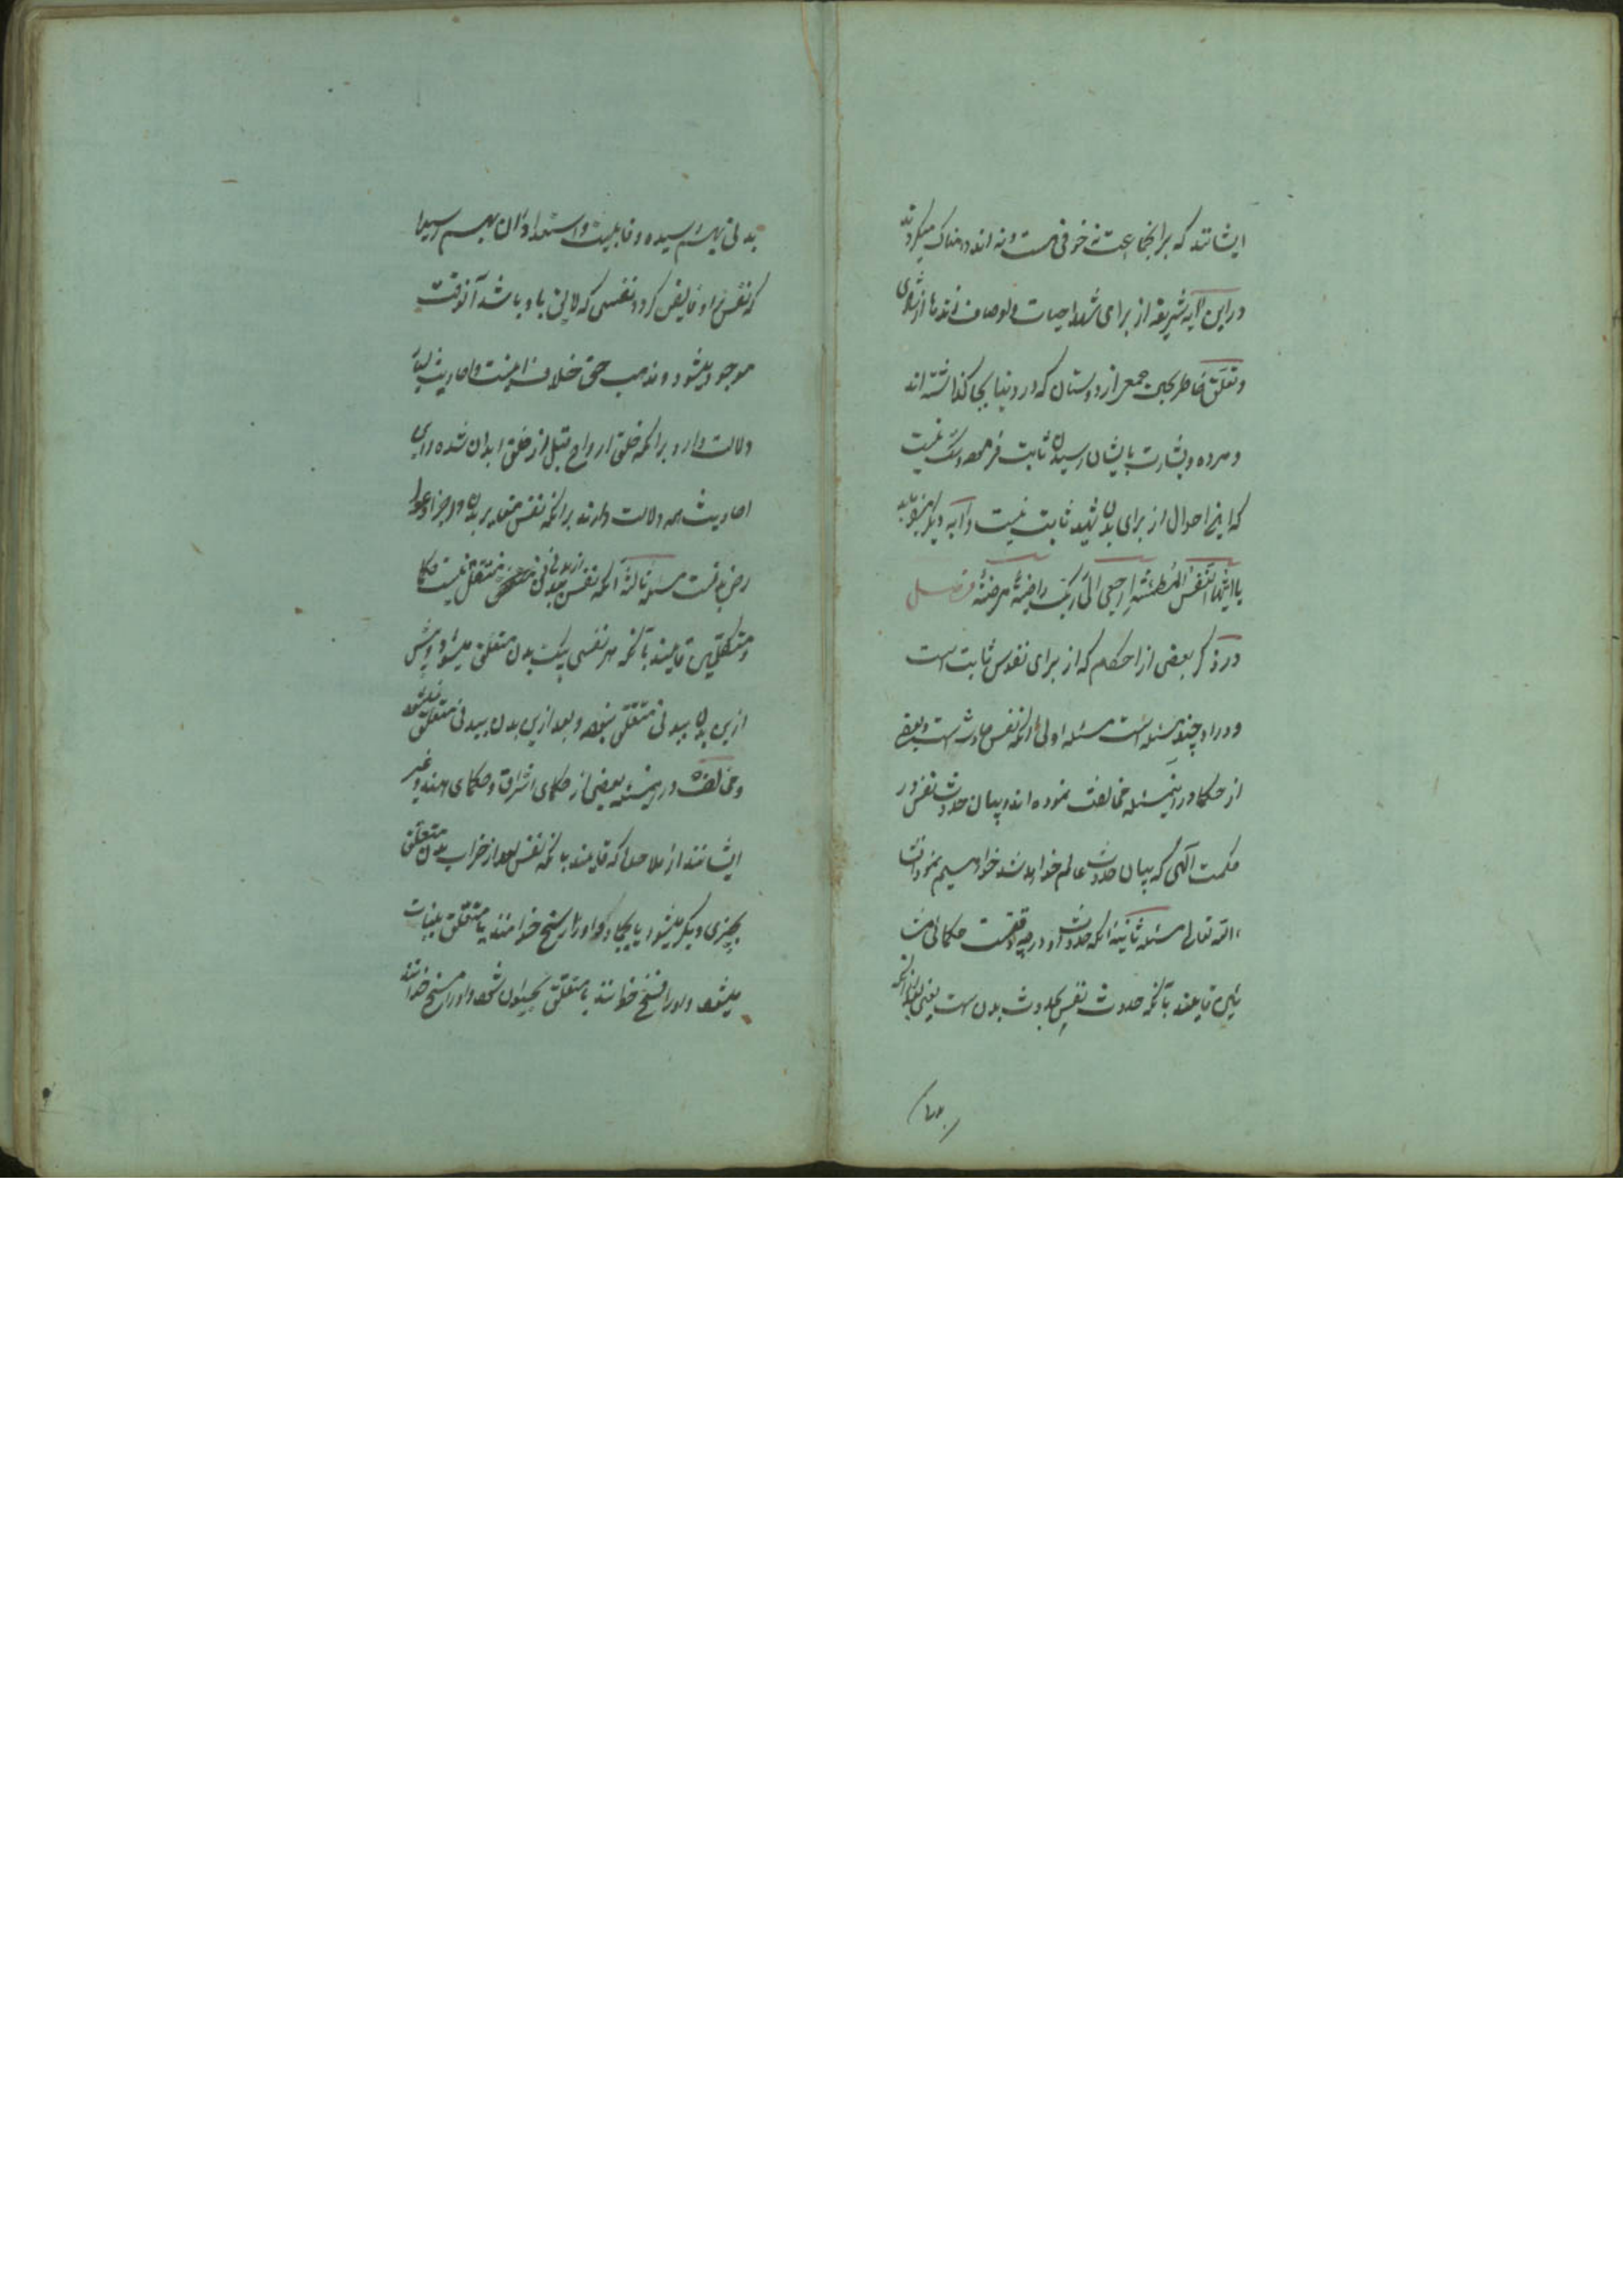 ایشانند که بر انجماعت نه خوفی هست و نه اندوهناک میکردند
و در این آیه شریفه از برای شهدا حیات و اوصاف زندها از شادی
و تعلق خاطر بجهت جمعی از دوستان که در دنیا بجا کذاشته‌اند
و مرده و بشارت بایشان رسیدن ثابت فرموده و شک نیست
که این احوال از برای بدن شهید ثابت نیست و آیه دیگر
یا ایتها النفس المطمئنه ارجعی الی ربک راضیة مرضیة فصل
در ذکر بعضی از احکام که از برای نفوس ثابت است
و در او چند مسئله است مسئله اولی آنکه نفس حادث است و بعضی
از حکما در اینمسئله مخالفت نموده‌اند و بیان حدوث نفس در
حکمت الهی که بیان حدوث عالم خواهد شد خواهیم نمود انشا
الله تعالی مسئله ثانیه آنکه حدوث او در چه وقتست حکمای مشا
ئین قایلند بآنکه حدوث نفس بحدوث بدن است یعنی بعد از آنکه
بدنی
بدنی بهم رسیده و قابلیت و استعداد آن بهم رسید
که نفس بر او فایض کردد نفسی که لایق باو باشد آنوقت
موجود میشود و مذهب حق خلاف اینست و احادیث بسیار
دلالت دارد بر آنکه خلق ارواح قبل از خلق ابدان شده و این
احادیث همه دلالت دارند بر آنکه نفس مغایر بدن و اجزا و
بدنست مسئله ثالثه آنکه نفس از بدنی ببدنی منتقل نیست حکما
و متکلمین قایلند بآنکه هر نفسی بیک بدن متعلق میشود و پیش
ازین بدن ببدنی متعلق نبوده و بعد ازین بدن ببدنی متعلق نمیشود
و مخالف در اینمسئله بعضی از حکمای اشراق و حکمای هند و غیر
ایشانند از ملاحده که قایلند بآنکه نفس بعد از خراب بدن متعلق
بچیزی دیگر میشود یا بجماد و او را رسخ خوانند یا متعلق بنبات
میشود و او را فسخ خوانند یا متعلق بحیوان شود و او را مسخ خوانند